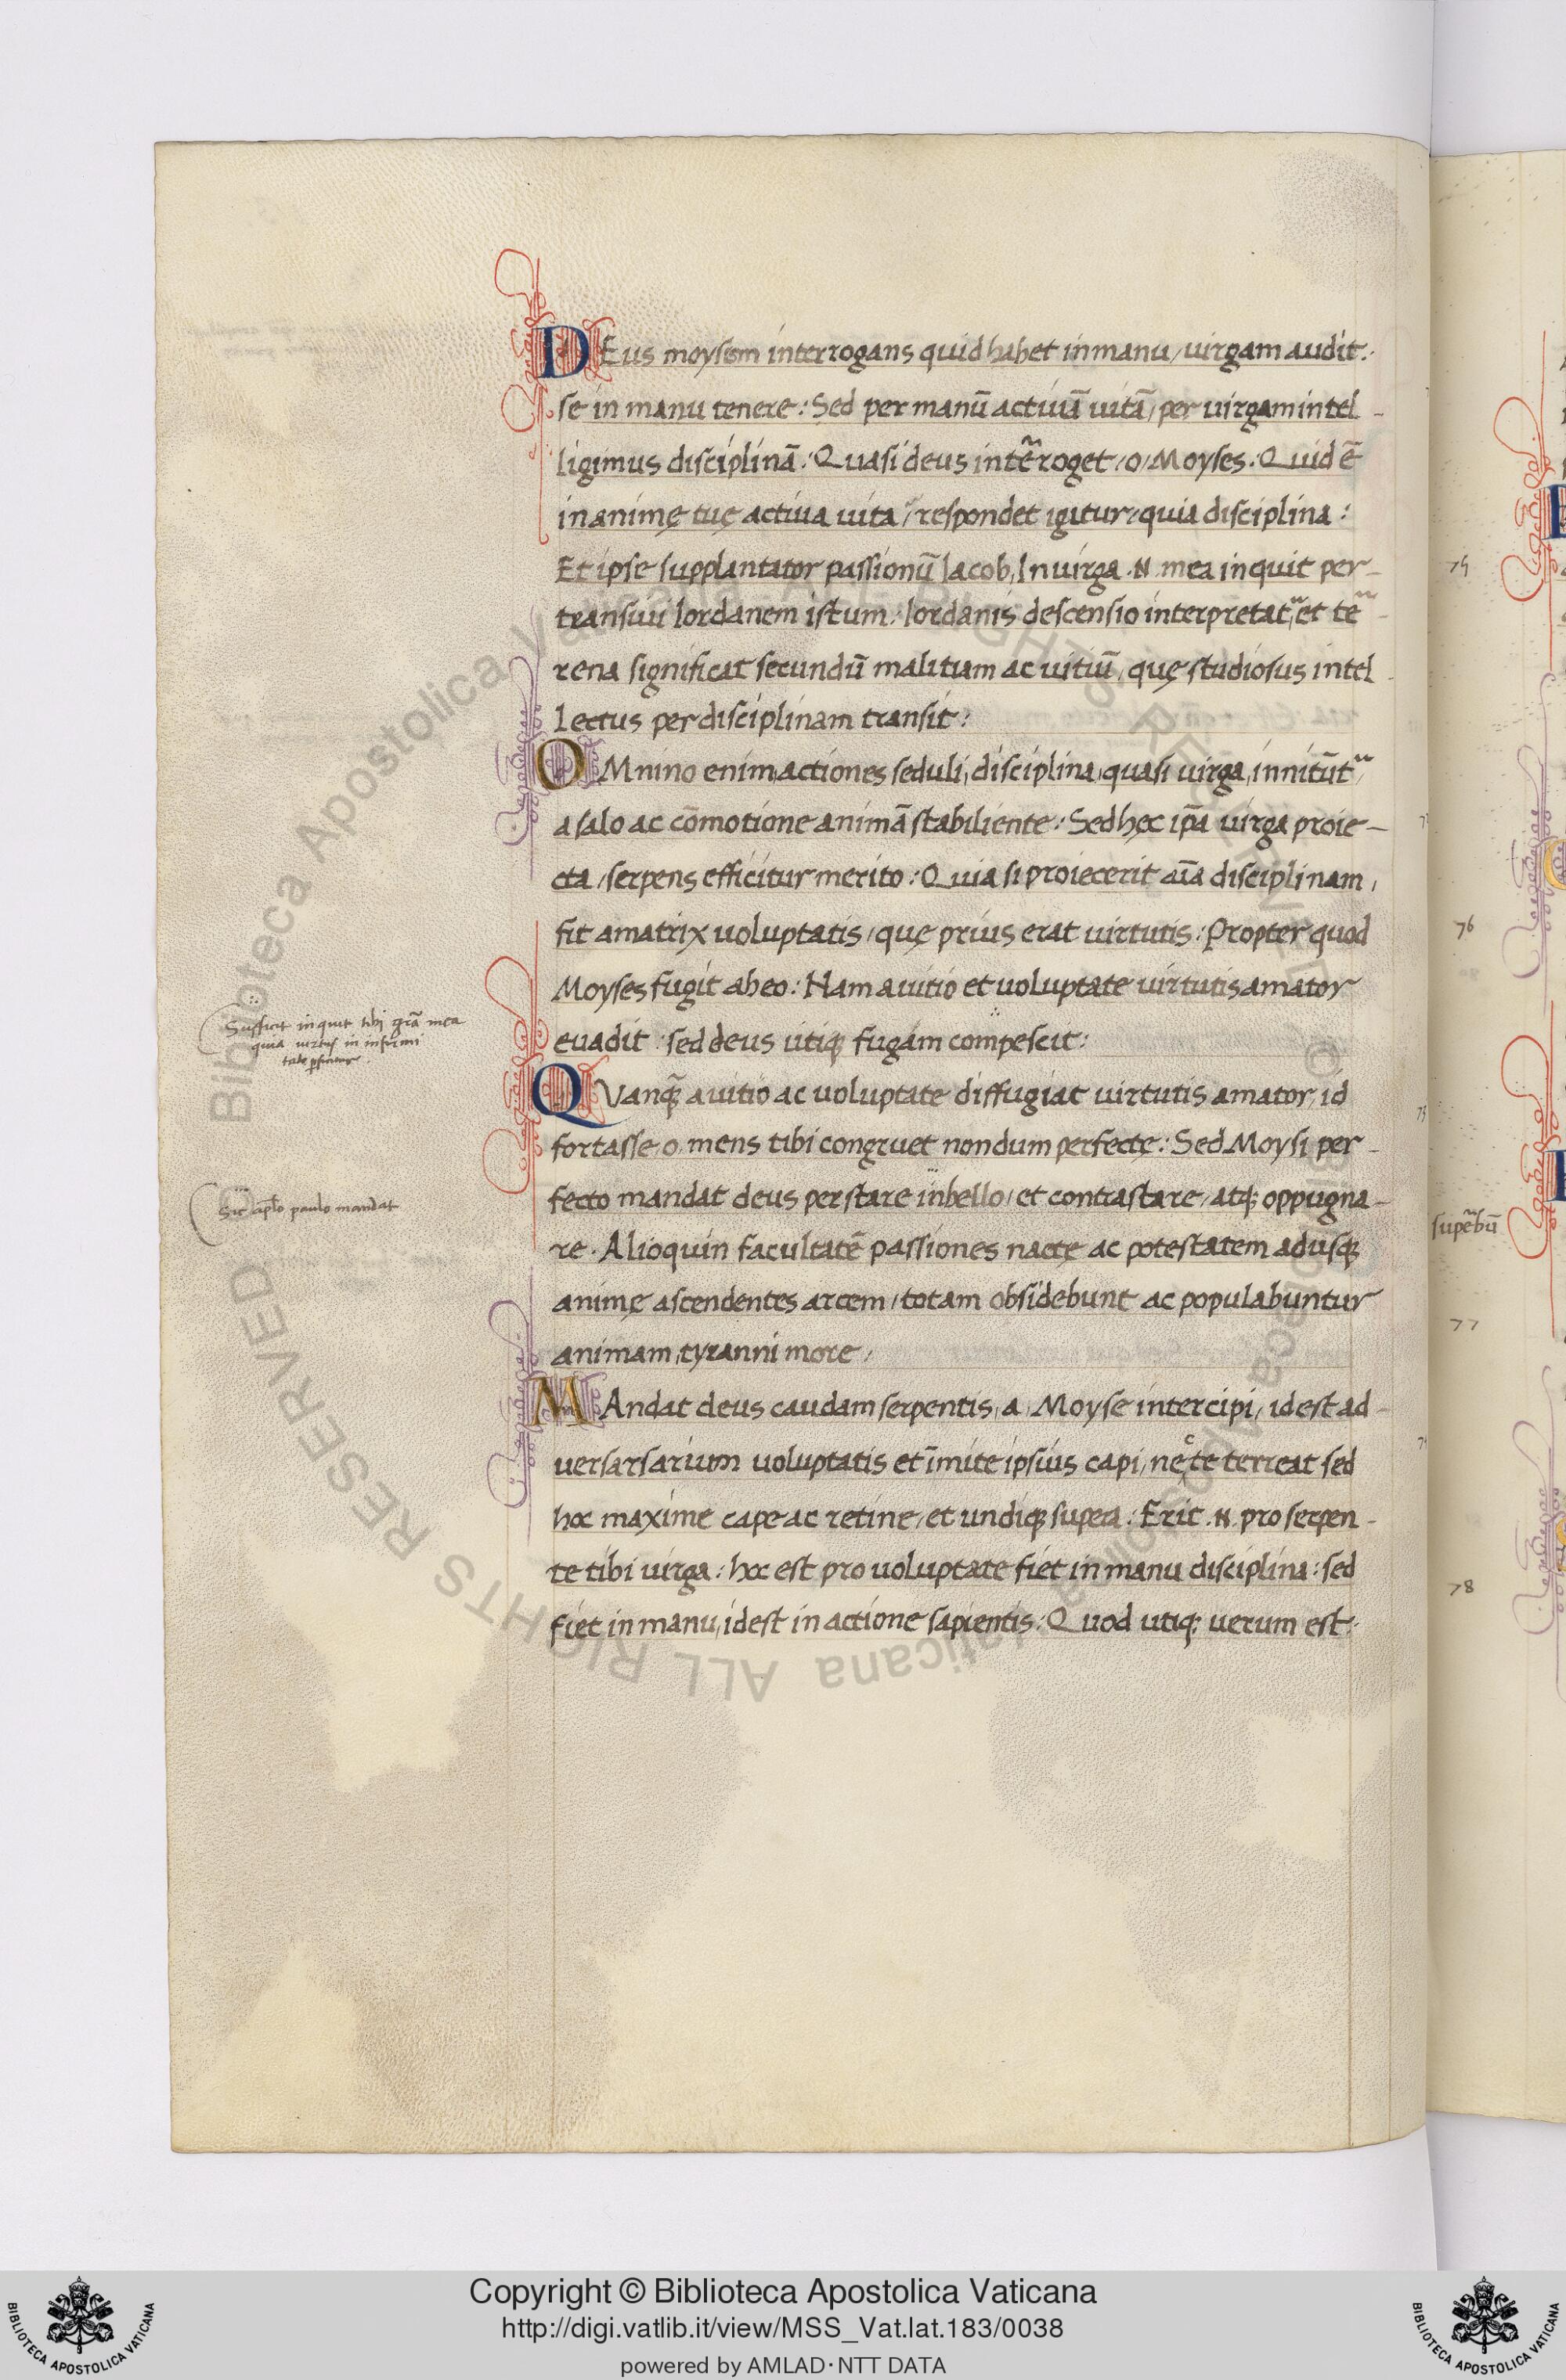 DEus moysem interrogans quid habet in manu / uirgam audit:·
se in manu tenere: Sed per manū actiuā uitā / per uirgam intel-
ligimus disciplinā: Quasi deus interroget / o / Moyses. Quid ē
in animę tuę actiua uita / respondet igitur / quia disciplina:
Et ipse supplantator passionū Iacob, In uirga .N. mea inquit per-
transiui Iordanem istum: Iordanis descensio interpretat~ et te~-
rena significat secundū malitiam ac uitiū, quę studiosus intel-
lectus per disciplinam transit:
OMnino enim actiones seduli, disciplina, quasi uirga, innitūt~,
a salo ac cōmotione animā stabiliente: Sed hęc ip̄a uirga proie-
cta / serpens efficitur merito: Quia si proiecerit aīa disciplinam,
fit amatrix uoluptatis / quę prius erat uirtutis: Propter quod
Moyses fugit ab eo: Nam a uitio et uoluptate uirtutis amator
euadit: sed deus utiq; fugam compescit:
QVanq̃ a uitio ac uoluptate diffugiat uirtutis amator, id
fortasse, o, mens tibi congruet nondum perfectę: Sed Moysi per-
fecto mandat deus perstare in bello / et contrastare / atq; oppugna-
re. Alioquin facultatē passiones nactę ac potestatem adusq;
animę ascendentes arcem / totam obsidebunt ac populabuntur
animam, tyranni more /
MAndat deus caudam serpentis, a, Moyse intercipi / id est ad-
uersarsarium uoluptatis et īmite ipsius capi / nec te terreat sed
hoc maxime cape ac retine / et undiq; supera: Erit .N. pro serpen-
te tibi uirga: hoc est pro uoluptate fiet in manu disciplina: sed
fiet in manu, id est in actione sapientis: Quod utiq; uerum est:·
Sufficit inquit tibi grā mea
quia uirtus in infirmi
tate
Sic aplo paulo mandat
75
76
supebū
77
78
Biblioteca Apostolica Vaticana ALL RIGHTS RESERVED ©
Copyright © Biblioteca Apostolica Vaticana
http://digi.vatlib.it/view/MSS_Vat.lat.183/0038
powered by AMLAD·NTT DATA
BIBLIOTECA APOSTOLICA VATICANA
BIBLIOTECA APOSTOLICA VATICANA